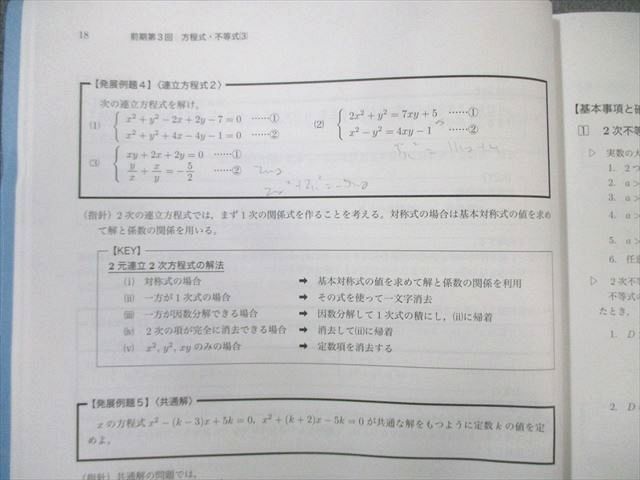 18 前期第3回 方程式・不等式③
【発展例題4】〈連立方程式2〉
次の連立方程式を解け。
(1) { x² + y² − 2x + 2y − 7 = 0 ……①
x² + y² + 4x − 4y − 1 = 0 ……②
(2) { 2x² + y² = 7xy + 5 ……①
x² − y² = 4xy − 1 ……②
(3) { xy + 2x + 2y = 0 ……①
y/x + x/y = −5/2 ……②
（指針）2次の連立方程式では，まず1次の関係式を作ることを考える。対称式の場合は基本対称式の値を求め
て解と係数の関係を用いる。
【KEY】
2元連立2次方程式の解法
(i) 対称式の場合 ➡ 基本対称式の値を求めて解と係数の関係を利用
(ii) 一方が1次式の場合 ➡ その式を使って一文字消去
(iii) 一方が因数分解できる場合 ➡ 因数分解して1次式の積にし，(ii)に帰着
(iv) 2次の項が完全に消去できる場合 ➡ 消去して(ii)に帰着
(v) x², y², xy のみの場合 ➡ 定数項を消去する
【発展例題5】〈共通解〉
x の方程式 x² − (k − 3)x + 5k = 0, x² + (k + 2)x − 5k = 0 が共通な解をもつように定数 k の値を定
めよ。
（指針）共通解の問題では，
【基本事項と
1 2次不等
▷ 実数の大
1. 2つ
2. a >
3. a >
4. a >
5. a >
6. 任意
▷ 2次不等
不等式の
たとき，
1. D
2. D